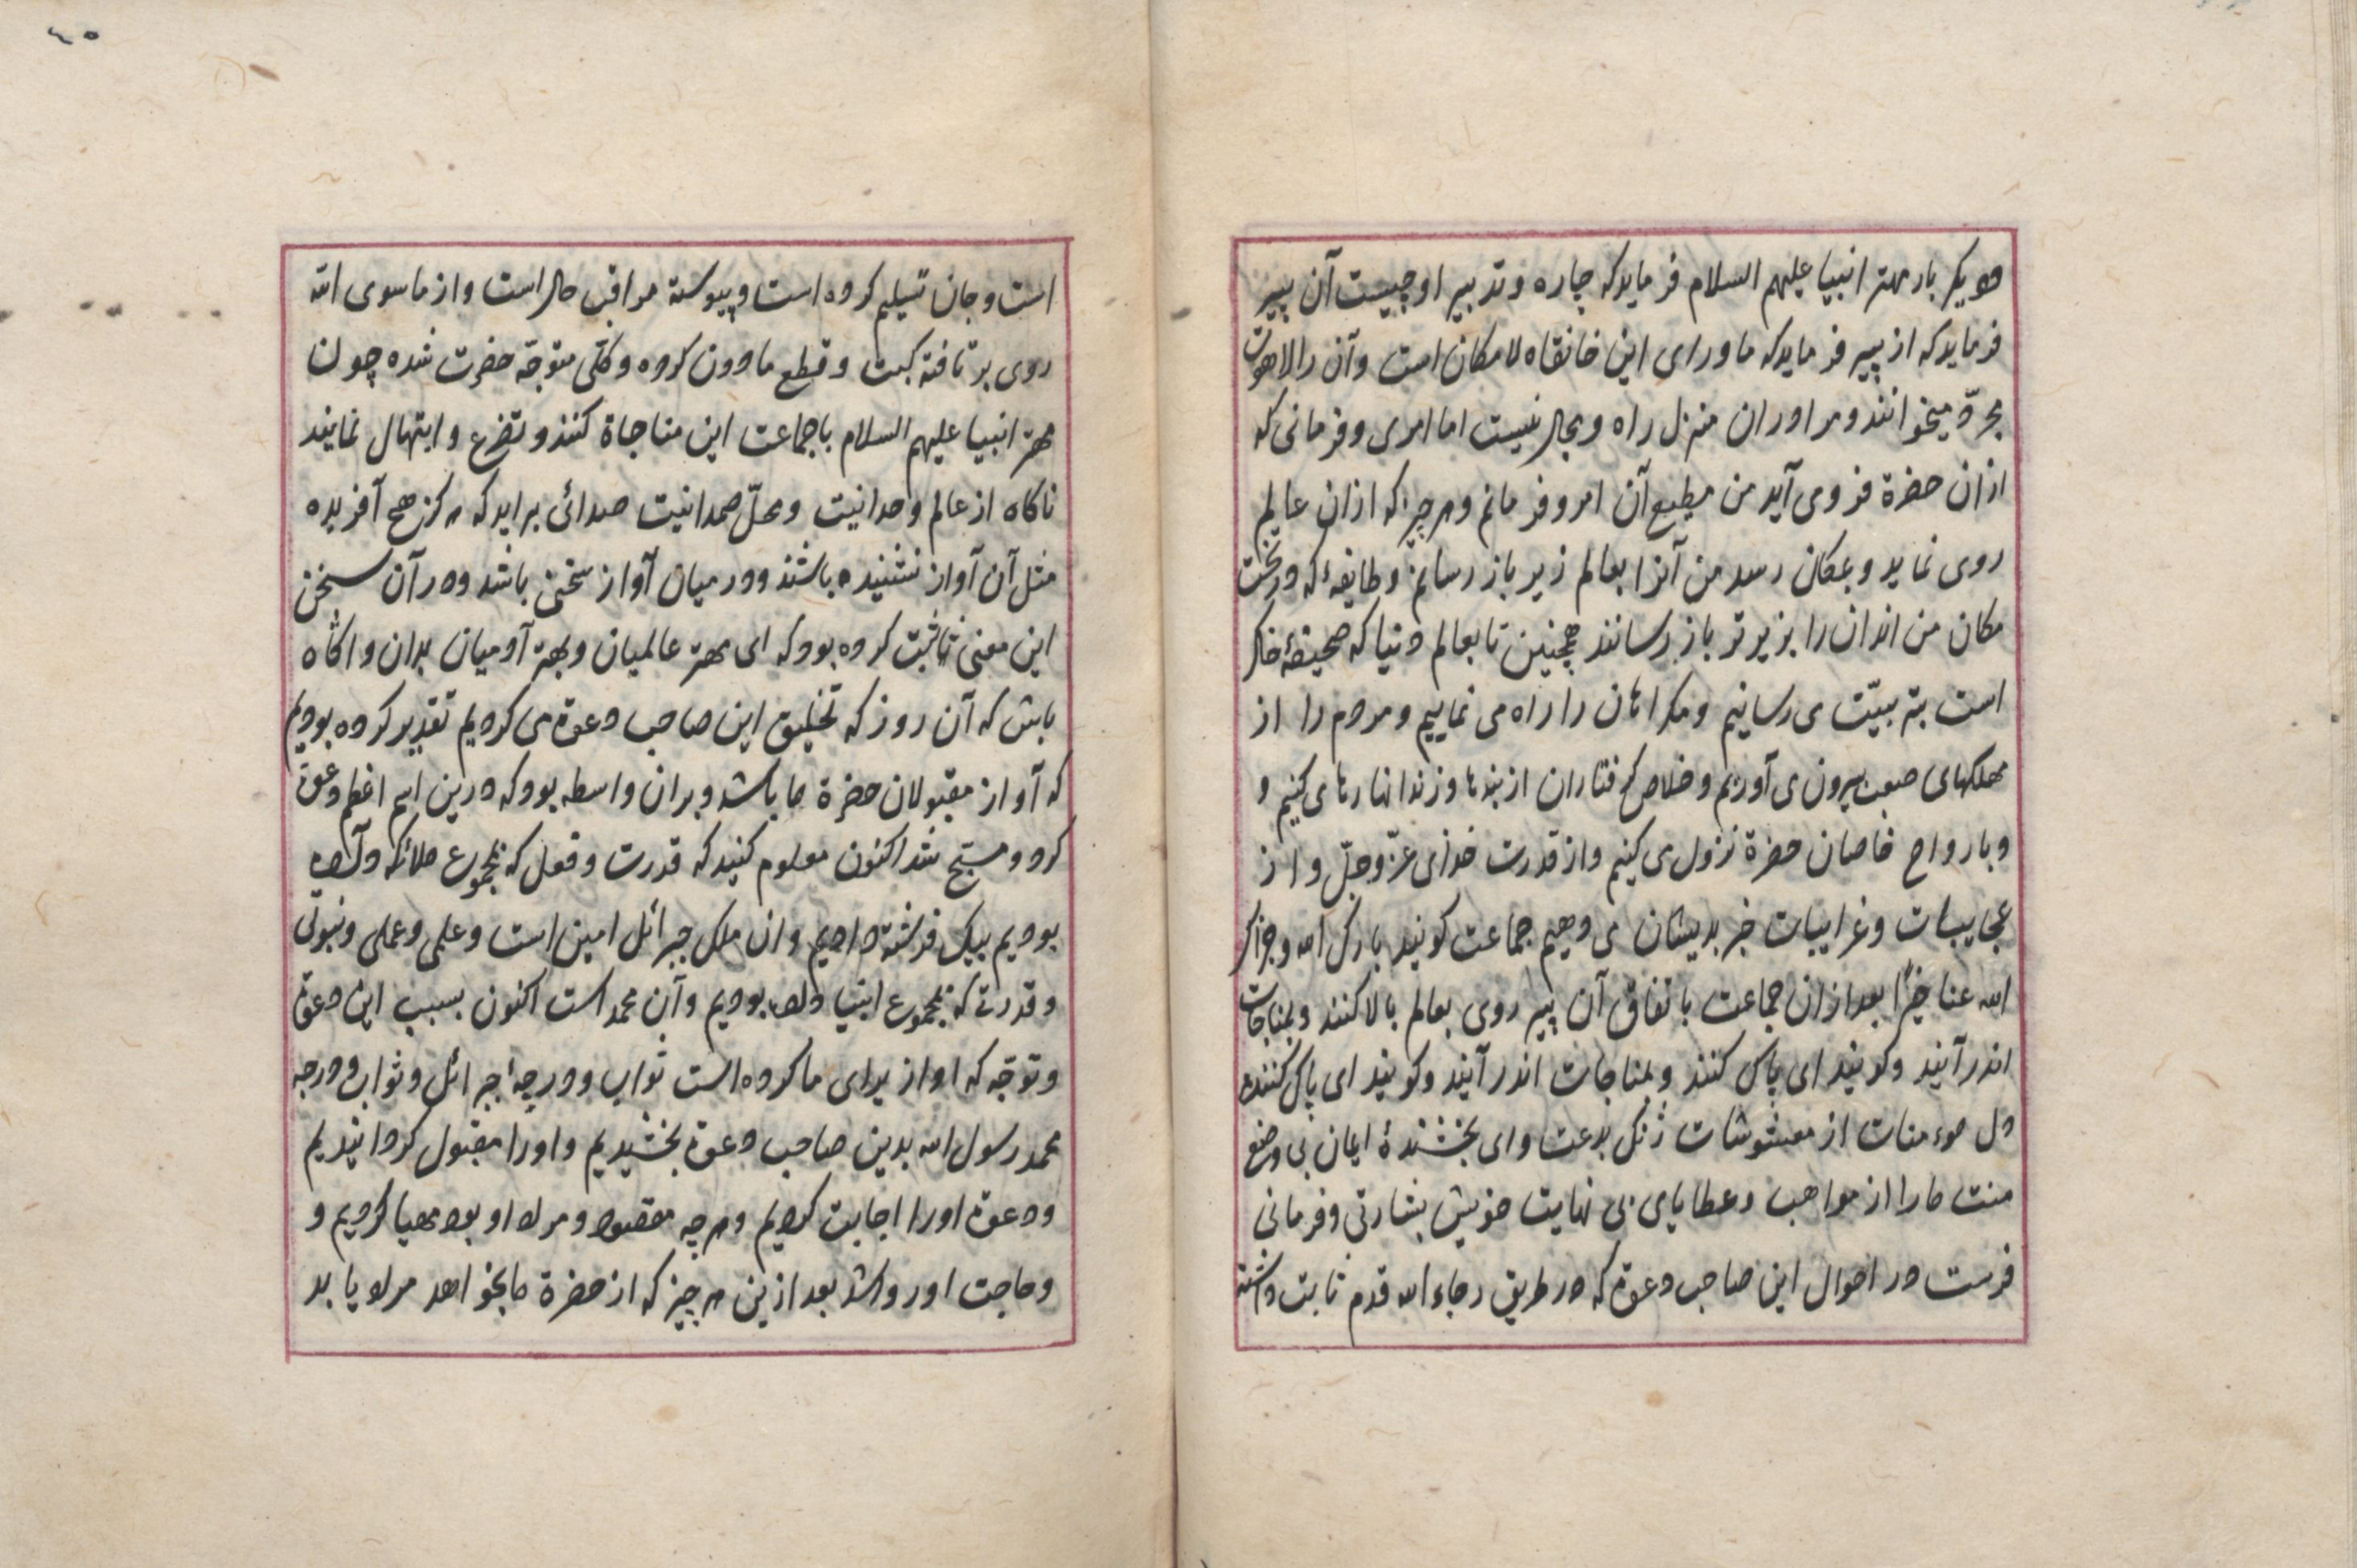 دویکر بار مهتر انبیا علیهم السلام فرماید که چاره و تدبیر او چیست آن پیر
فرماید که از پیر فرماید که ماورای این خانقاه لا مکان است و آن را لاهوت
مجرّد میخوانند و مرا دران منزل راه و مجال نیست اما امری و فرمانی که
ازان حضرة فرو می آید من مطیع آن امر و فرمانم و هر چیز که ازان عالم
روی نماید و بمکان رسد من آنرا بعالم زیر باز رسانم و طایفهٔ که در تحت
مکان من اندان را بزیرتر باز رسانند همچنین تا بعالم دنیا که صحیفهٔ خاک
است بتربیّت می رسانیم و مکراهان را راه می نماییم و مردم را از
مهلکهای صعب بیرون می آوریم و خلاص کرفتاران از بندها و زندانها رها می کنیم و
و بارواح خاصان حضرة نزول می کنیم و از قدرت خدای عزّ و جلّ و از
عجایبات و غرایبات خبر بدیشان می دهیم جماعت کویند بارک الله و جزاک
الله عنا خیرًا بعد ازان جماعت باتفاق آن پیر روی بعالم بالا کنند و بمناجات
اندر آیند و کویند ای پاک کنند و بمناجات اندر آیند و کویند ای پاک کننده
دل موءمنات از مغشوشات زنک بدعت و ای بخشندهٔ ایمان بی وضع
منت ما را از مواهب و عطایای بی نهایت خویش بشارتی و فرمانی
فرست در احوال این صاحب دعوة که در طریق رجاء الله قدم ثابت داشته
است و جان تسلیم کرده است و پیوسته مراقب حال است و از ماسوی الله
روی بر تافته کبت و قطع مادون کرده و کلّی متوجّه حضرت شده چون
مهتر انبیا علیهم السلام با جماعت این مناجاة کنند و تضرع و ابتهال نمایند
ناکاه از عالم وحدانیت و محلّ صمدانیت صدائی برآید که هرکز هیچ آفریده
مثل آن آواز نشنیده باشند و در میان آواز سخنی باشد و در آن سخن
این معنی ثبت کرده بود که ای مهتر عالمیان و بهتر آدمیان بدان و اکاه
باش که آن روز که تخلیق این صاحب دعوة می کردیم تقدیر کرده بودیم
که آو از مقبولان حضرة ما باشد و بران واسطه بود که درین اسم اعظم دعوة
کرد و مسبّح شد اکنون معلوم کنید که قدرت و فعل که بمجموع ملائکه داده
بودیم بیک فرشته دادیم و ان ملک جبرائل امین است و علمی و عملی و نبوتی
و قدرتی که بمجموع انبیا داده بودیم و آن محمد است اکنون بسبب این دعوة
و توجّه که او از برای ما کرده است ثواب و درجهٔ جبرائل و ثواب و درجه
محمد رسول الله بدین صاحب دعوة بخشیدیم و او را مقبول کردانیدیم
و دعوة او را اجابت کردیم و هرچه مقصود و مراد او بود مهیا کردیم و
و حاجت او روا شد بعد ازین هر چیز که از حضرة ما بخواهد مراد یابد
٤٥